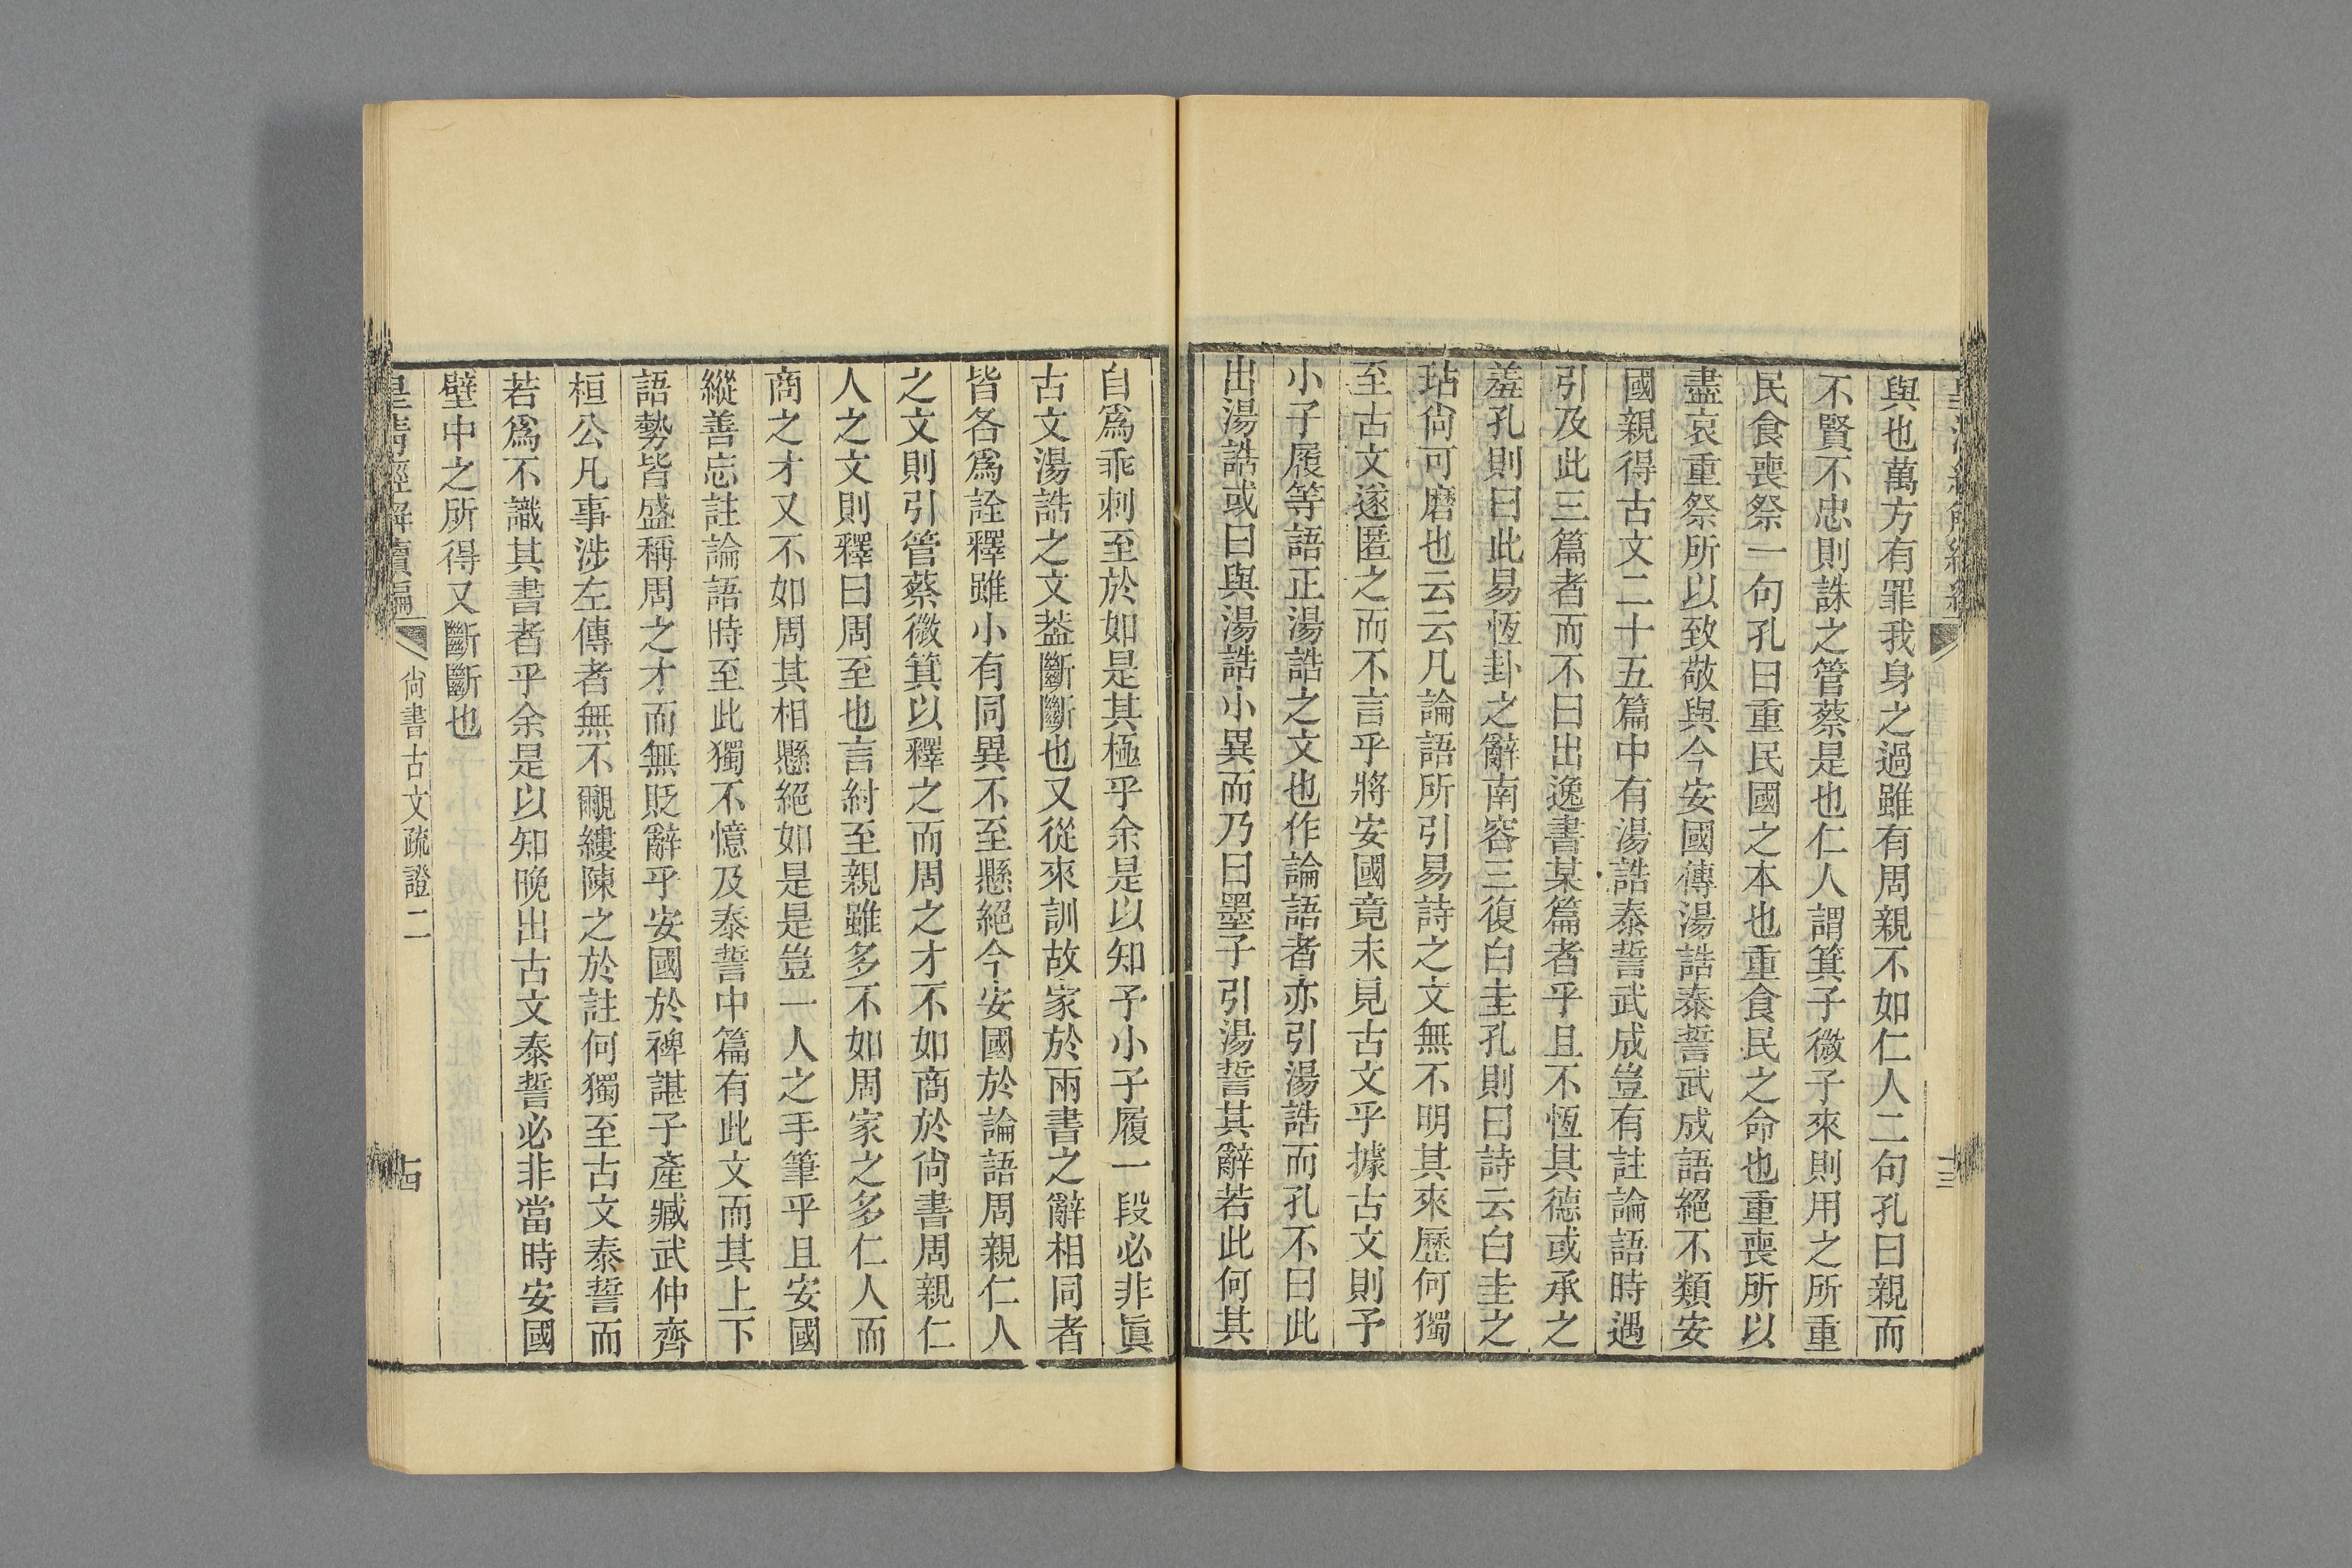 與也萬方有罪我身之過雖有周親不如仁人二句孔曰親而
不賢不忠則誅之管蔡是也仁人謂箕子微子來則用之所重
民食喪祭一句孔曰重民國之本也重食民之命也重喪所以
盡哀重祭所以致敬與今安國傳湯誥泰誓武成語絕不類安
國親得古文二十五篇中有湯誥泰誓武成豈有註論語時遇
引及此三篇者而不曰出逸書某篇者乎且不恆其德或承之
羞孔則曰此易恆卦之辭南容三復白圭孔則曰詩云白圭之
玷尙可磨也云云凡論語所引易詩之文無不明其來歷何獨
至古文遂匿之而不言乎將安國竟未見古文乎據古文則予
小子履等語正湯誥之文也作論語者亦引湯誥而孔不曰此
出湯誥或曰與湯誥小異而乃曰墨子引湯誓其辭若此何其
自爲乖刺至於如是其極乎余是以知予小子履一段必非眞
古文湯誥之文葢斷斷也又從來訓故家於兩書之辭相同者
皆各爲詮釋雖小有同異不至懸絕今安國於論語周親仁人
之文則引管蔡微箕以釋之而周之才不如商於尙書周親仁
人之文則釋曰周至也言紂至親雖多不如周家之多仁人而
商之才又不如周其相懸絕如是是豈一人之手筆乎且安國
縱善忘註論語時至此獨不憶及泰誓中篇有此文而其上下
語勢皆盛稱周之才而無貶辭乎安國於裨諶子產臧武仲齊
桓公凡事涉左傳者無不覼縷陳之於註何獨至古文泰誓而
若爲不識其書者乎余是以知晚出古文泰誓必非當時安國
壁中之所得又斷斷也
皇淸經解續編 尙書古文疏證二 十四